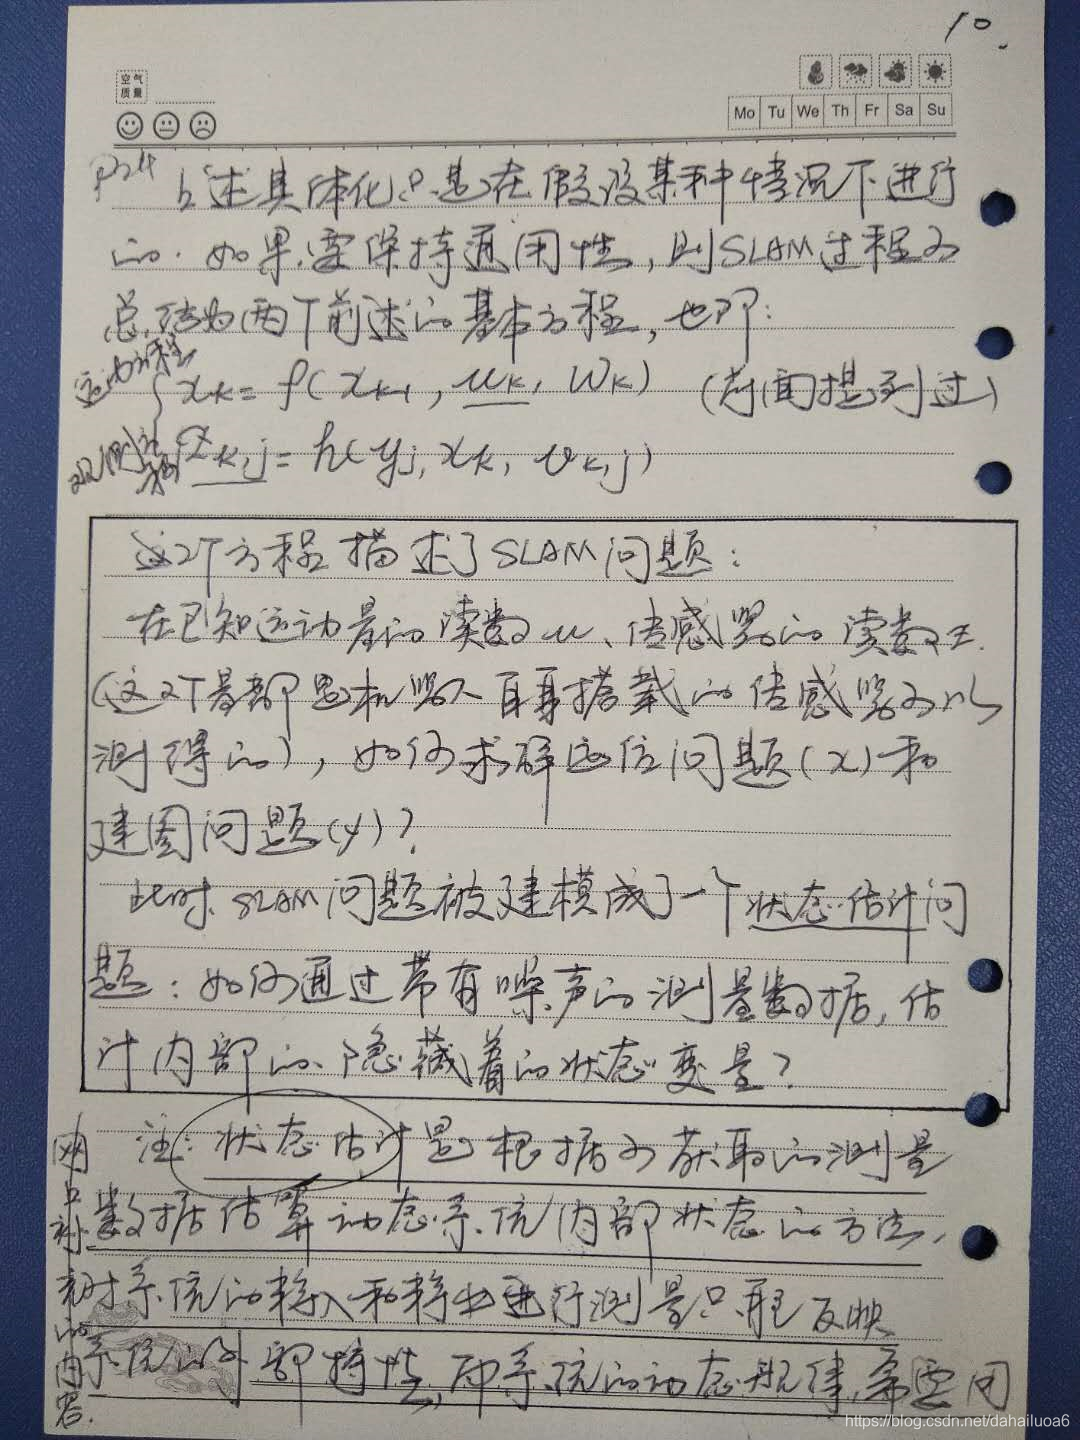 10.
空气
质量
Mo Tu We Th Fr Sa Su
P24
上述具体化,只是在假设某种情况下进行
的. 如果要保持通用性, 则SLAM过程可
总结为两个前述的基本方程, 也即:
运动方程
xk = f(xk-1, uk, wk) (前面提到过)
观测方程
zk,j = h(yj, xk, vk,j)
这2个方程描述了SLAM问题:
在已知运动量的读数u、传感器的读数z
(这2个量都是机器人自身搭载的传感器可以
测得的), 如何求解定位问题(x)和
建图问题(y)?
此时, SLAM问题被建模成了一个状态估计问
题: 如何通过带有噪声的测量数据, 估
计内部的、隐藏着的状态变量?
注: 状态估计是根据可获取的测量
数据估算动态系统内部状态的方法,
对系统的输入和输出进行测量只能反映
系统的外部特性, 而系统的动态规律, 需要用
网上补充的内容.
https://blog.csdn.net/dahailuoa6